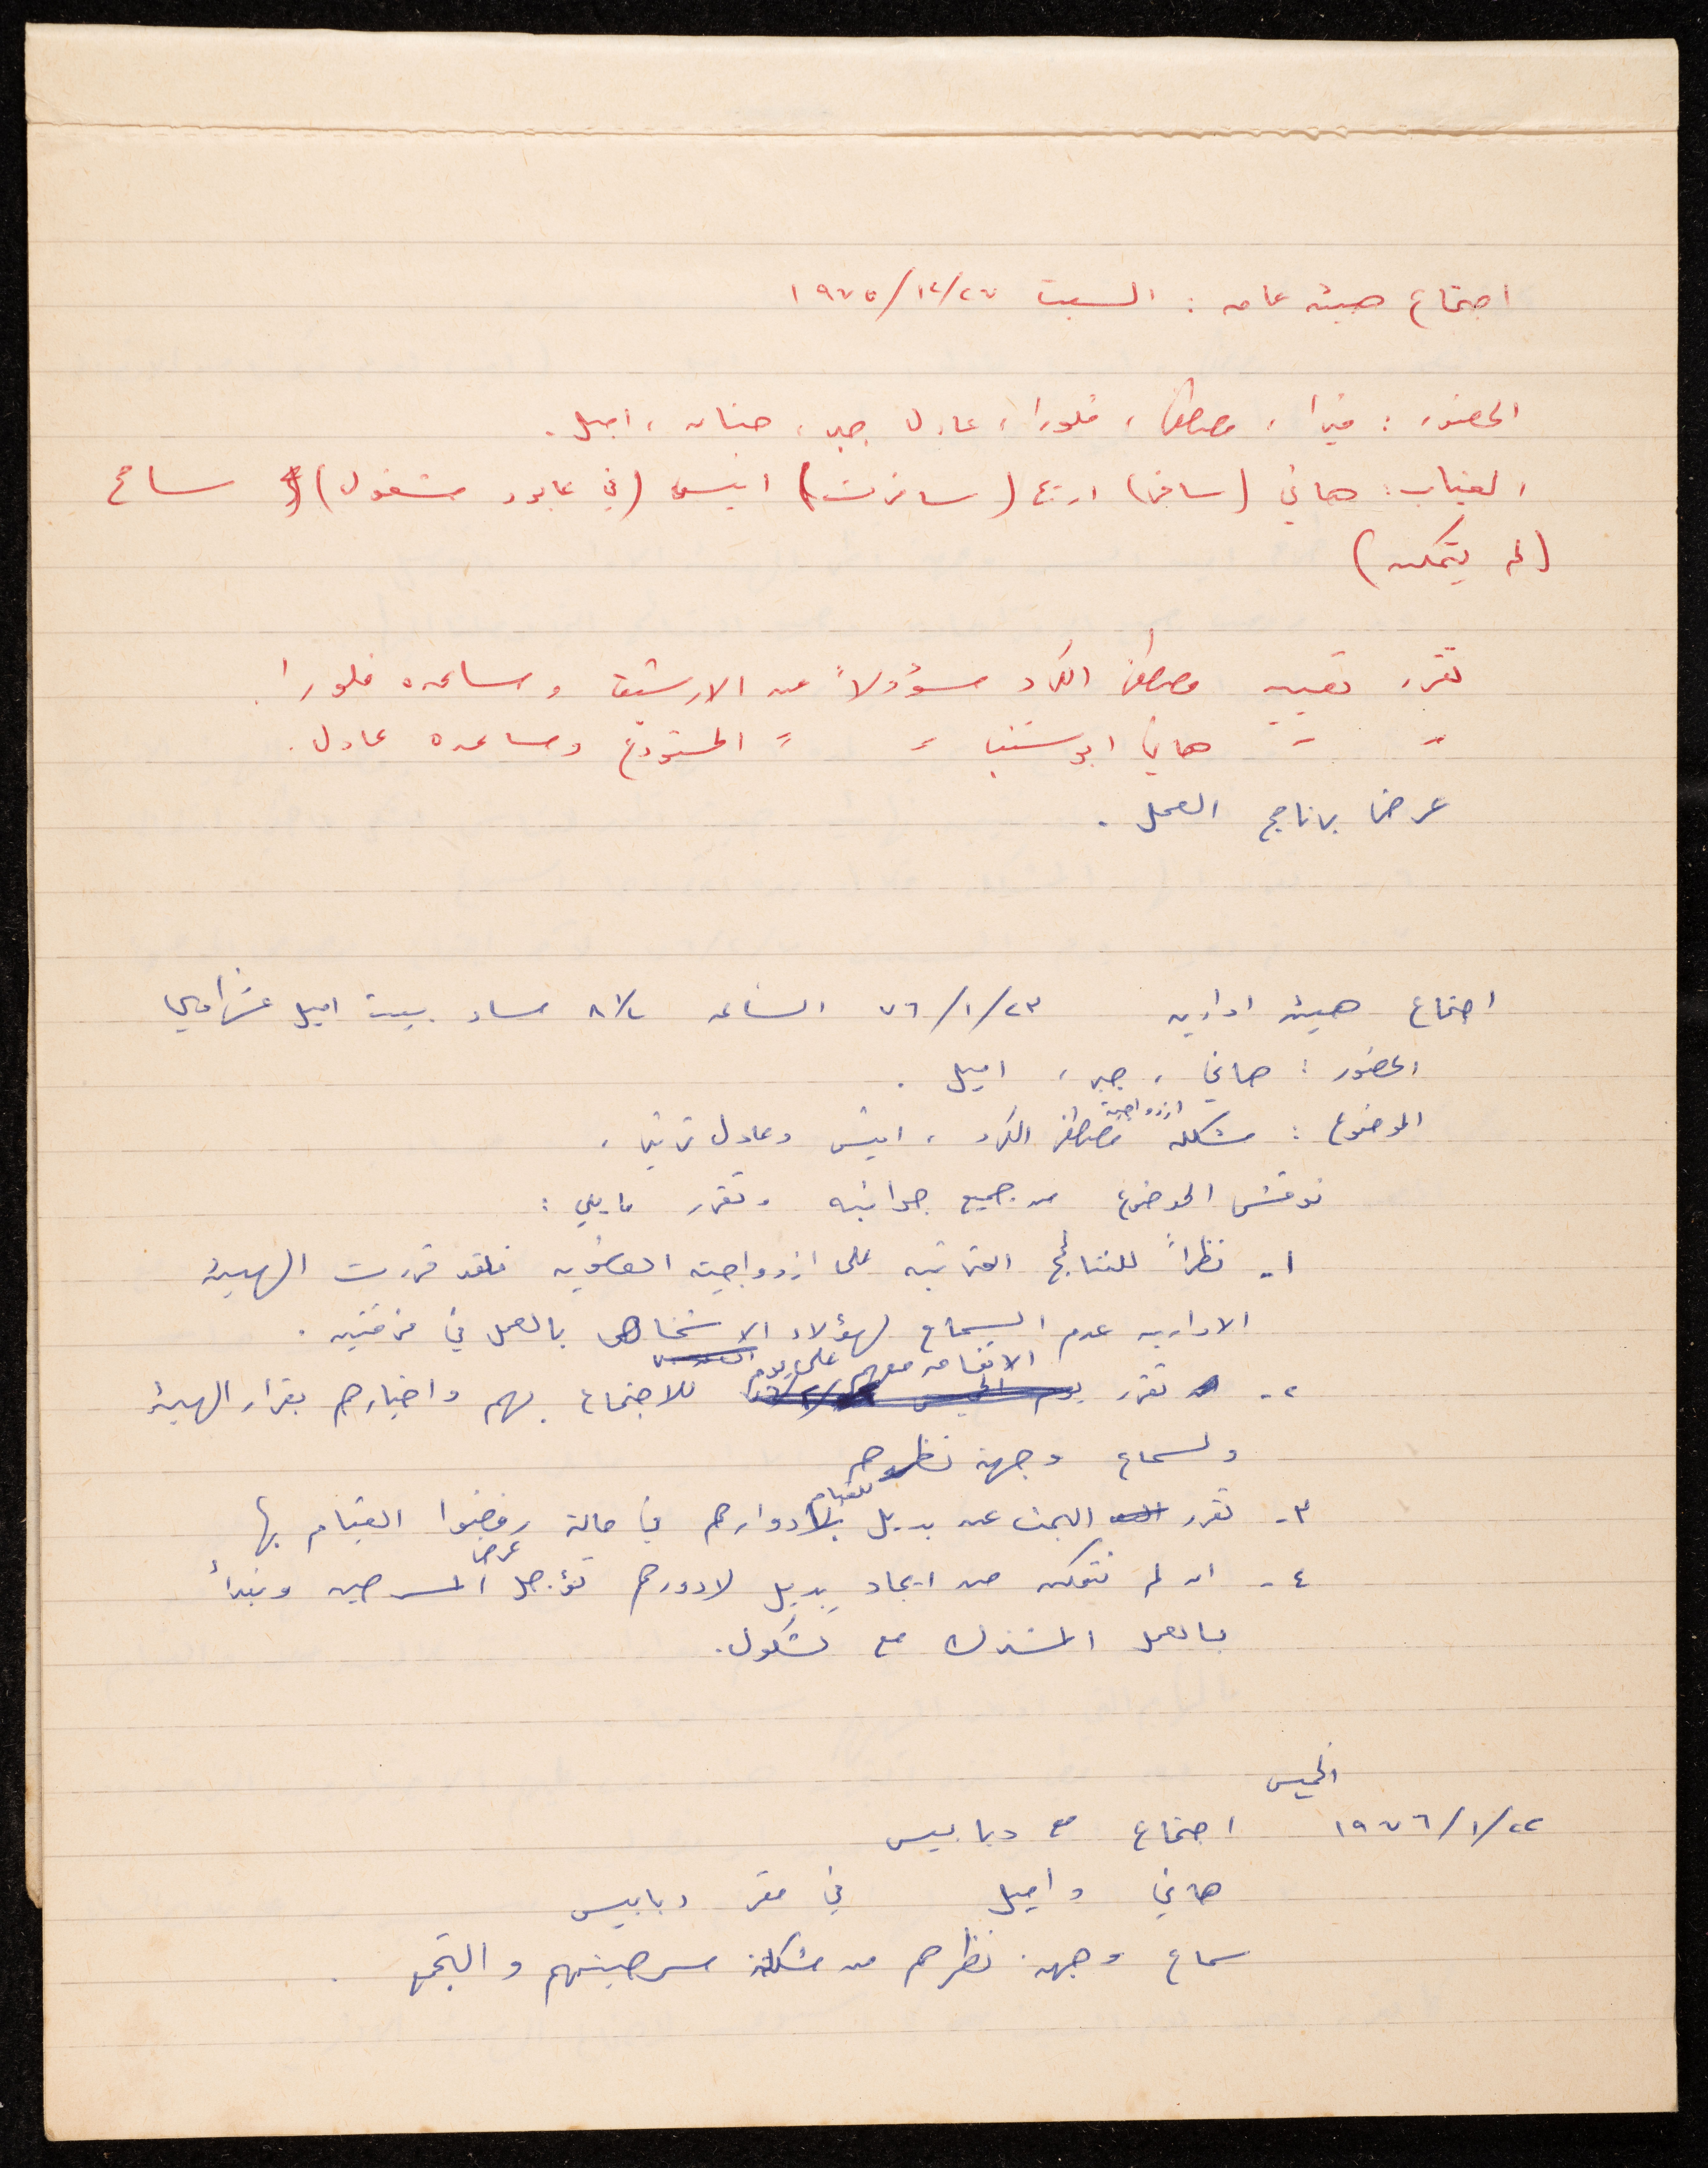 اجتماع هيئه عامه : السبت ١٩٧٥/١٢/٢٧
الحضور : فيرا ، مصطفى ، فلورا ، عادل جبر ، حنان ، اميل .
الغياب : هاني (سافر) اريج (سافرت) انيس (في عابود مشغول) سامح
(لم يتمكن)
تقرر تعيين مصطفى الكرد مسؤولاً عن الارشيف ومساعده فلورا .
" " هاني ابو شنب " " المستودع ومساعده عادل .
عرض برنامج العمل .
اجتماع هيئه اداريه ٧٦/١/٢٣ الساعه ٨ ١/٢ مساء بيت اميل عشراوي
الحضور : هاني ، جبر ، اميل .
الموضوع : مشكله ازدواجية مصطفى الكرد ، انيس وعادل ترتير .
نوقش الموضوع من جميع جوانبه وتقرر ما يلي :
١- نظراً للنتائج المترتبه على ازدواجيته العضويه فلقد قررت الهيئة
الاداريه عدم السماح لهؤلاء الاشخاص بالعمل في فرقتين .
٢- تقرر الاتفاق معهم على يوم للاجتماع بهم واخبارهم بقرار الهيئة
ولسماع وجهة نظرهم
٣- تقرر البحث عن بديل للقيام بادوارهم في حالة رفضوا القيام بها
٤- ان لم نتمكن من ايجاد بديل لادورهم تؤجل عرض المسرحيه ونبدأ
بالعمل المشترك مع كشكول .
الخميس
١٩٧٦/١/٢٢ اجتماع مع دبابيس
هاني واميل في مقر دبابيس
سماع وجهة نظرهم من مشكلة مسرحيتهم والتجمع .